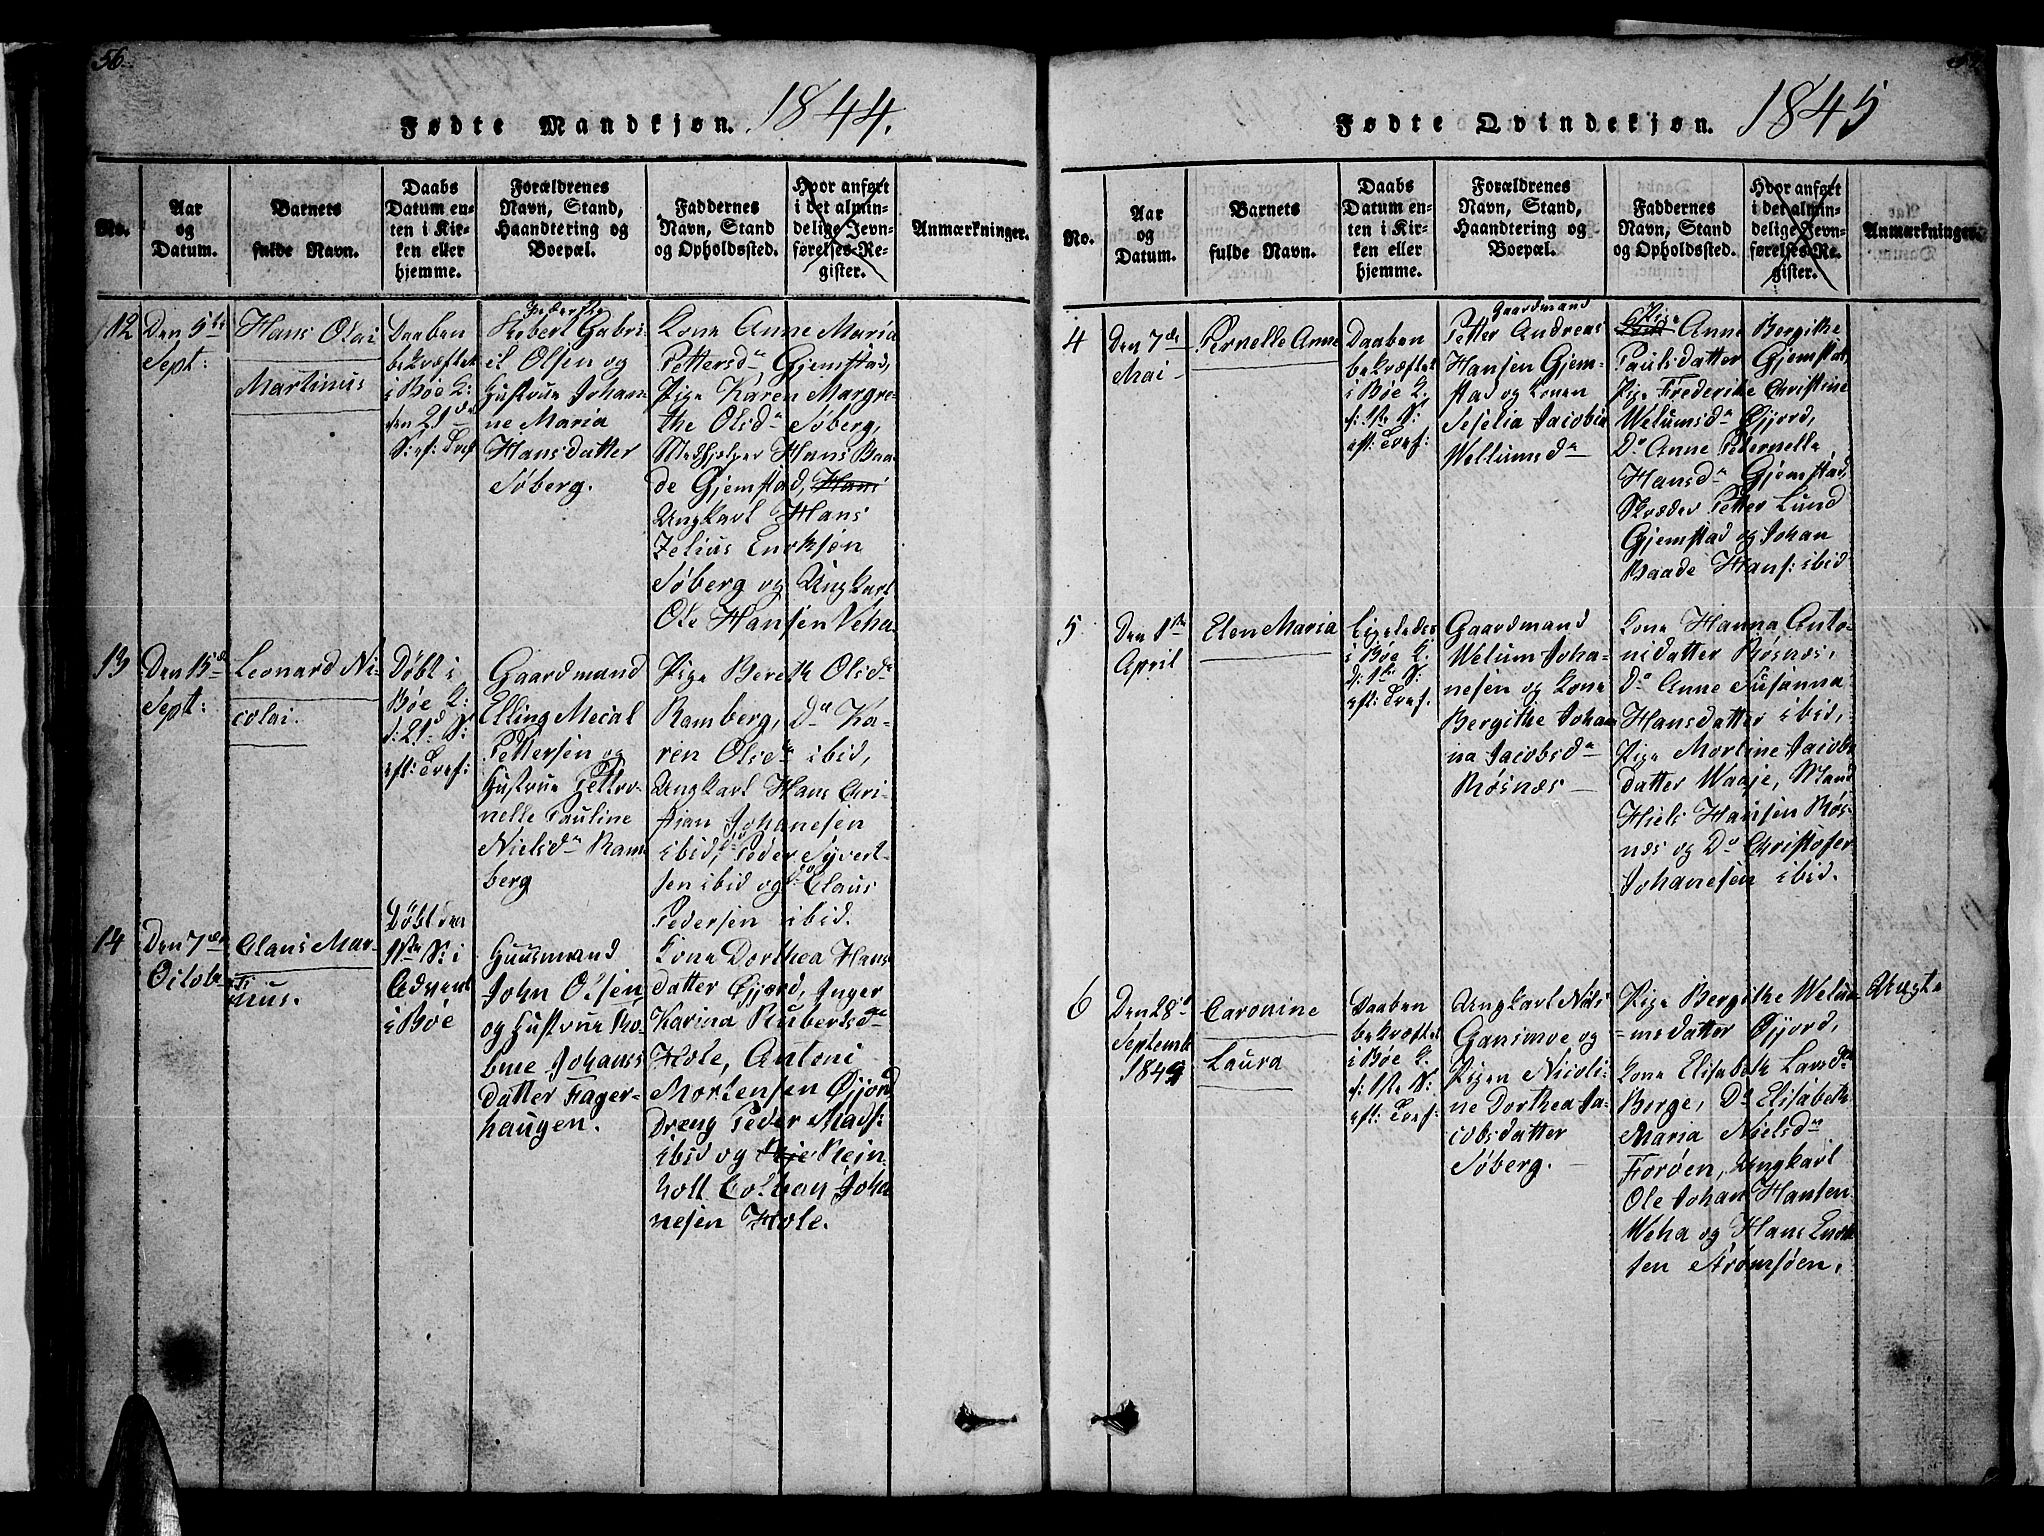 56
Fødte Mandkjøn. 1844.
No.
Aar
og
Datum.
Barnets
fulde Navn.
Daabs
Datum en-
ten i Kir-
ken eller
hjemme.
Forældrenes
Navn, Stand,
Haandtering og
Boepæl.
Faddernes
Navn, Stand
og Opholdssted.
Hvor anført
i det almin-
delige Jevn-
førelses-Re-
gister.
Anmærkninger.
12
Den 5te
Sept:
Hans Olai
Martinus
Daaben
bekræftet
i Bøe K:
den 21de
S: ef: Tref
Gabri-
el Olsen og
Hustrue Johan-
ne Maria
Hansdatter
Søberg.
Kone Anne Maria
Pettersdr, Gjemstad,
Pige Karen Margre-
the Olsdr Søberg,
Medhjelper Hans Baa-
de Gjemstad, Hans
Ungkarl Hans
Zelius Enoksen
Søberg og Ungkarl
Ole Hansen Veha
13
Den 15de
Sept:
Leonard Ni-
colai.
Døbt i
Bøe K:
d: 21d S:
eft: Tref:
Gaardmand
Elling Mecal
Pettersen og
Hustrue Petter-
nelle Pauline
Nielsdr Ram-
berg
Pige Bereth Olsdr
Ramberg, Do Ka-
ren Olsdr ibid,
Ungkarl Hans Cri-
stian Johanesen
ibid, Peder Syvert-
sen ibid og do Claus
Pedersen ibid.
14
Den 7de
October
Claus Mar-
tinus.
Døbt den
1ste S: i
Advent
i Bøe
Huusmand
John Olsen
og Hustrue
Johans
datter Fager-
haugen.
Kone Dorthea Hans
datter Øjjord, Inger
Karina Rubertsdr
Hole, Antoni
Mortensen Øjjord
Dreng Peder Mads:
ibid og Rein
holt Colban Joha
nesen Hole.
Fødte Qvindekjøn. 1845
No.
Aar
og
Datum.
Barnets
fulde Navn.
Daabs
Datum en-
ten i Kir-
ken eller
hjemme.
Forældrenes
Navn, Stand,
Haandtering og
Boepæl.
Faddernes
Navn, Stand
og Opholdssted.
Hvor anført
i det almin-
delige Jevn-
førelses-Re-
gister.
Anmærkninger.
4
Den 7de
Mai
Pernelle Anne
Daaben
bekræftet
i Bøe K.
d: 1ste S:
eft: Tref:
Gaardmand
Petter Andreas
Hansen Gjem-
stad og Konen
Seselia Jacobin
Wellumsdr
Pige
Anne Bergithe
Paulsdatter Gjemstad
Pige Frederike Christine
Welumsdr Øjjord,
Do Anne Peternelle
Hansdr Gjemstad,
Skræder Petter Lund
Gjemstad og Johan
Baade Hans: ibid
5
Den 1ste
April
Elen Maria
Ligeledes
i Bøe K:
d: 1ste S:
eft: Tref.
Gaardmand
Welum Joha-
nesen og Kone
Bergithe Johan
na Jacobsdr
Røsnæs
Kone Hanna Anto-
nidatter Røsnæs,
Do Anne Susanna
Hansdatter ibid,
Pige Mortine Jacobs
datter Waaje, Mand
Niels Hansen Røs-
næs og Do Christofer
Johanesen ibid.
6
Den 28de
Septemb
1844
Caronine
Laura
Daaben
bekræftet
i Bøe K.
d: 1ste S:
eft: Tref:
Ungkarl Nils
Gansmoe og
Pigen Nicoli-
ne Dorthea Ja-
cobsdatter
Søberg.
Pige Bergithe Welum
=msdatter Øjjord,
Kone Elisabeth Larsdr
Berge, Do Elisabeth
Maria Nielsdr
Forøen, Ungkarl
Ole Johan Hansen
Weha og Hans Enok
sen Strømsøen.
Uægte